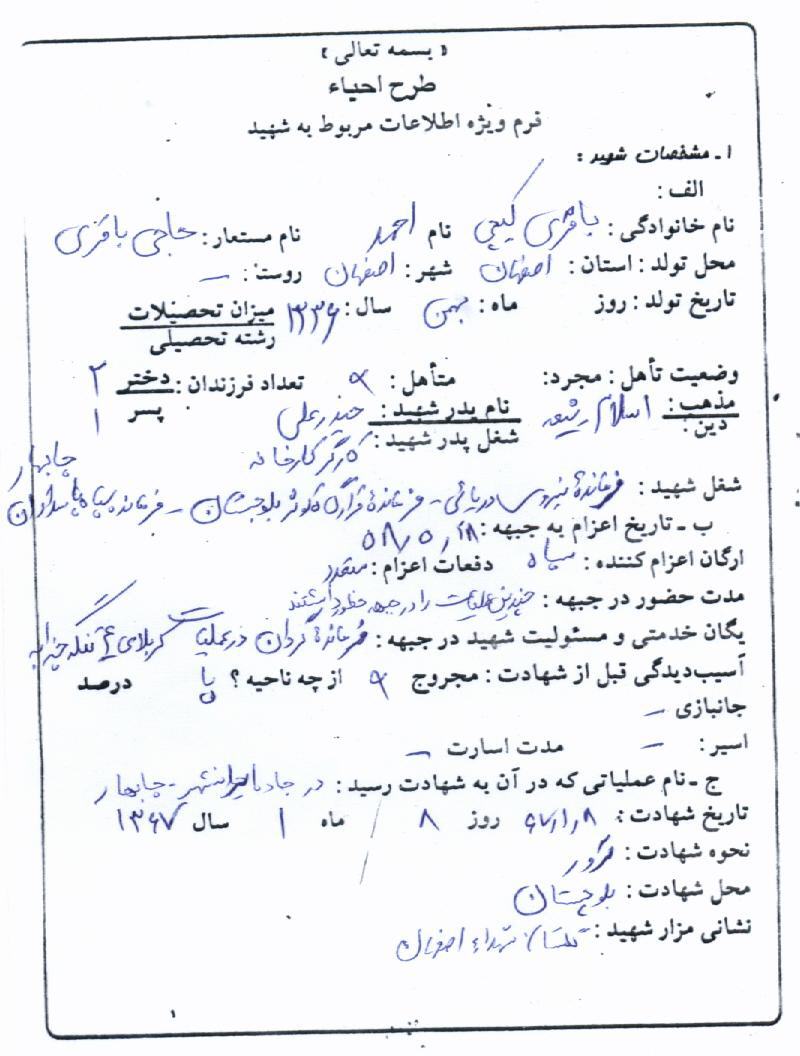 « بسمه تعالی »
طرح احیاء
فرم ویژه اطلاعات مربوط به شهید
۱ ـ مشخصات شهید :
الف :
نام خانوادگی : باقری کیچی نام احمد نام مستعار : حاجی باقری
محل تولد : استان : اصفهان شهر : اصفهان روستا : –
تاریخ تولد : روز ماه : بهمن سال : ۱۳۳۶ میزان تحصیلات
رشته تحصیلی
وضعیت تأهل : مجرد: متأهل : تعداد فرزندان : دختر ۲
پسر ۱
مذهب : اسلام شیعه نام پدر شهید : حیدرعلی
دین : شغل پدر شهید : کارگر کارخانه
شغل شهید : فرماندهٔ نیروی دریائی – فرماندهٔ قرارگاه کوثر بلوچستان – فرمانده سپاه پاسداران چابهار
ب ـ تاریخ اعزام به جبهه : ۵۸/۵/۱۸
ارگان اعزام کننده : سپاه دفعات اعزام : متعدد
مدت حضور در جبهه : چندین عملیات را در جبهه حضور داشتند
یگان خدمتی و مسئولیت شهید در جبهه : فرماندهٔ گردان در عملیات کربلای ۴ تنگه چزابه
آسیب‌دیدگی قبل از شهادت : مجروح از چه ناحیه ؟ پا درصد
جانبازی –
اسیر : – مدت اسارت –
ج ـ نام عملیاتی که در آن به شهادت رسید : در جاده ایرانشهر – چابهار
تاریخ شهادت : ۶۷/۱/۸ روز ۸ ماه ۱ سال ۱۳۶۷
نحوه شهادت : ترور
محل شهادت : بلوچستان
نشانی مزار شهید : گلستان شهداء اصفهان
۱